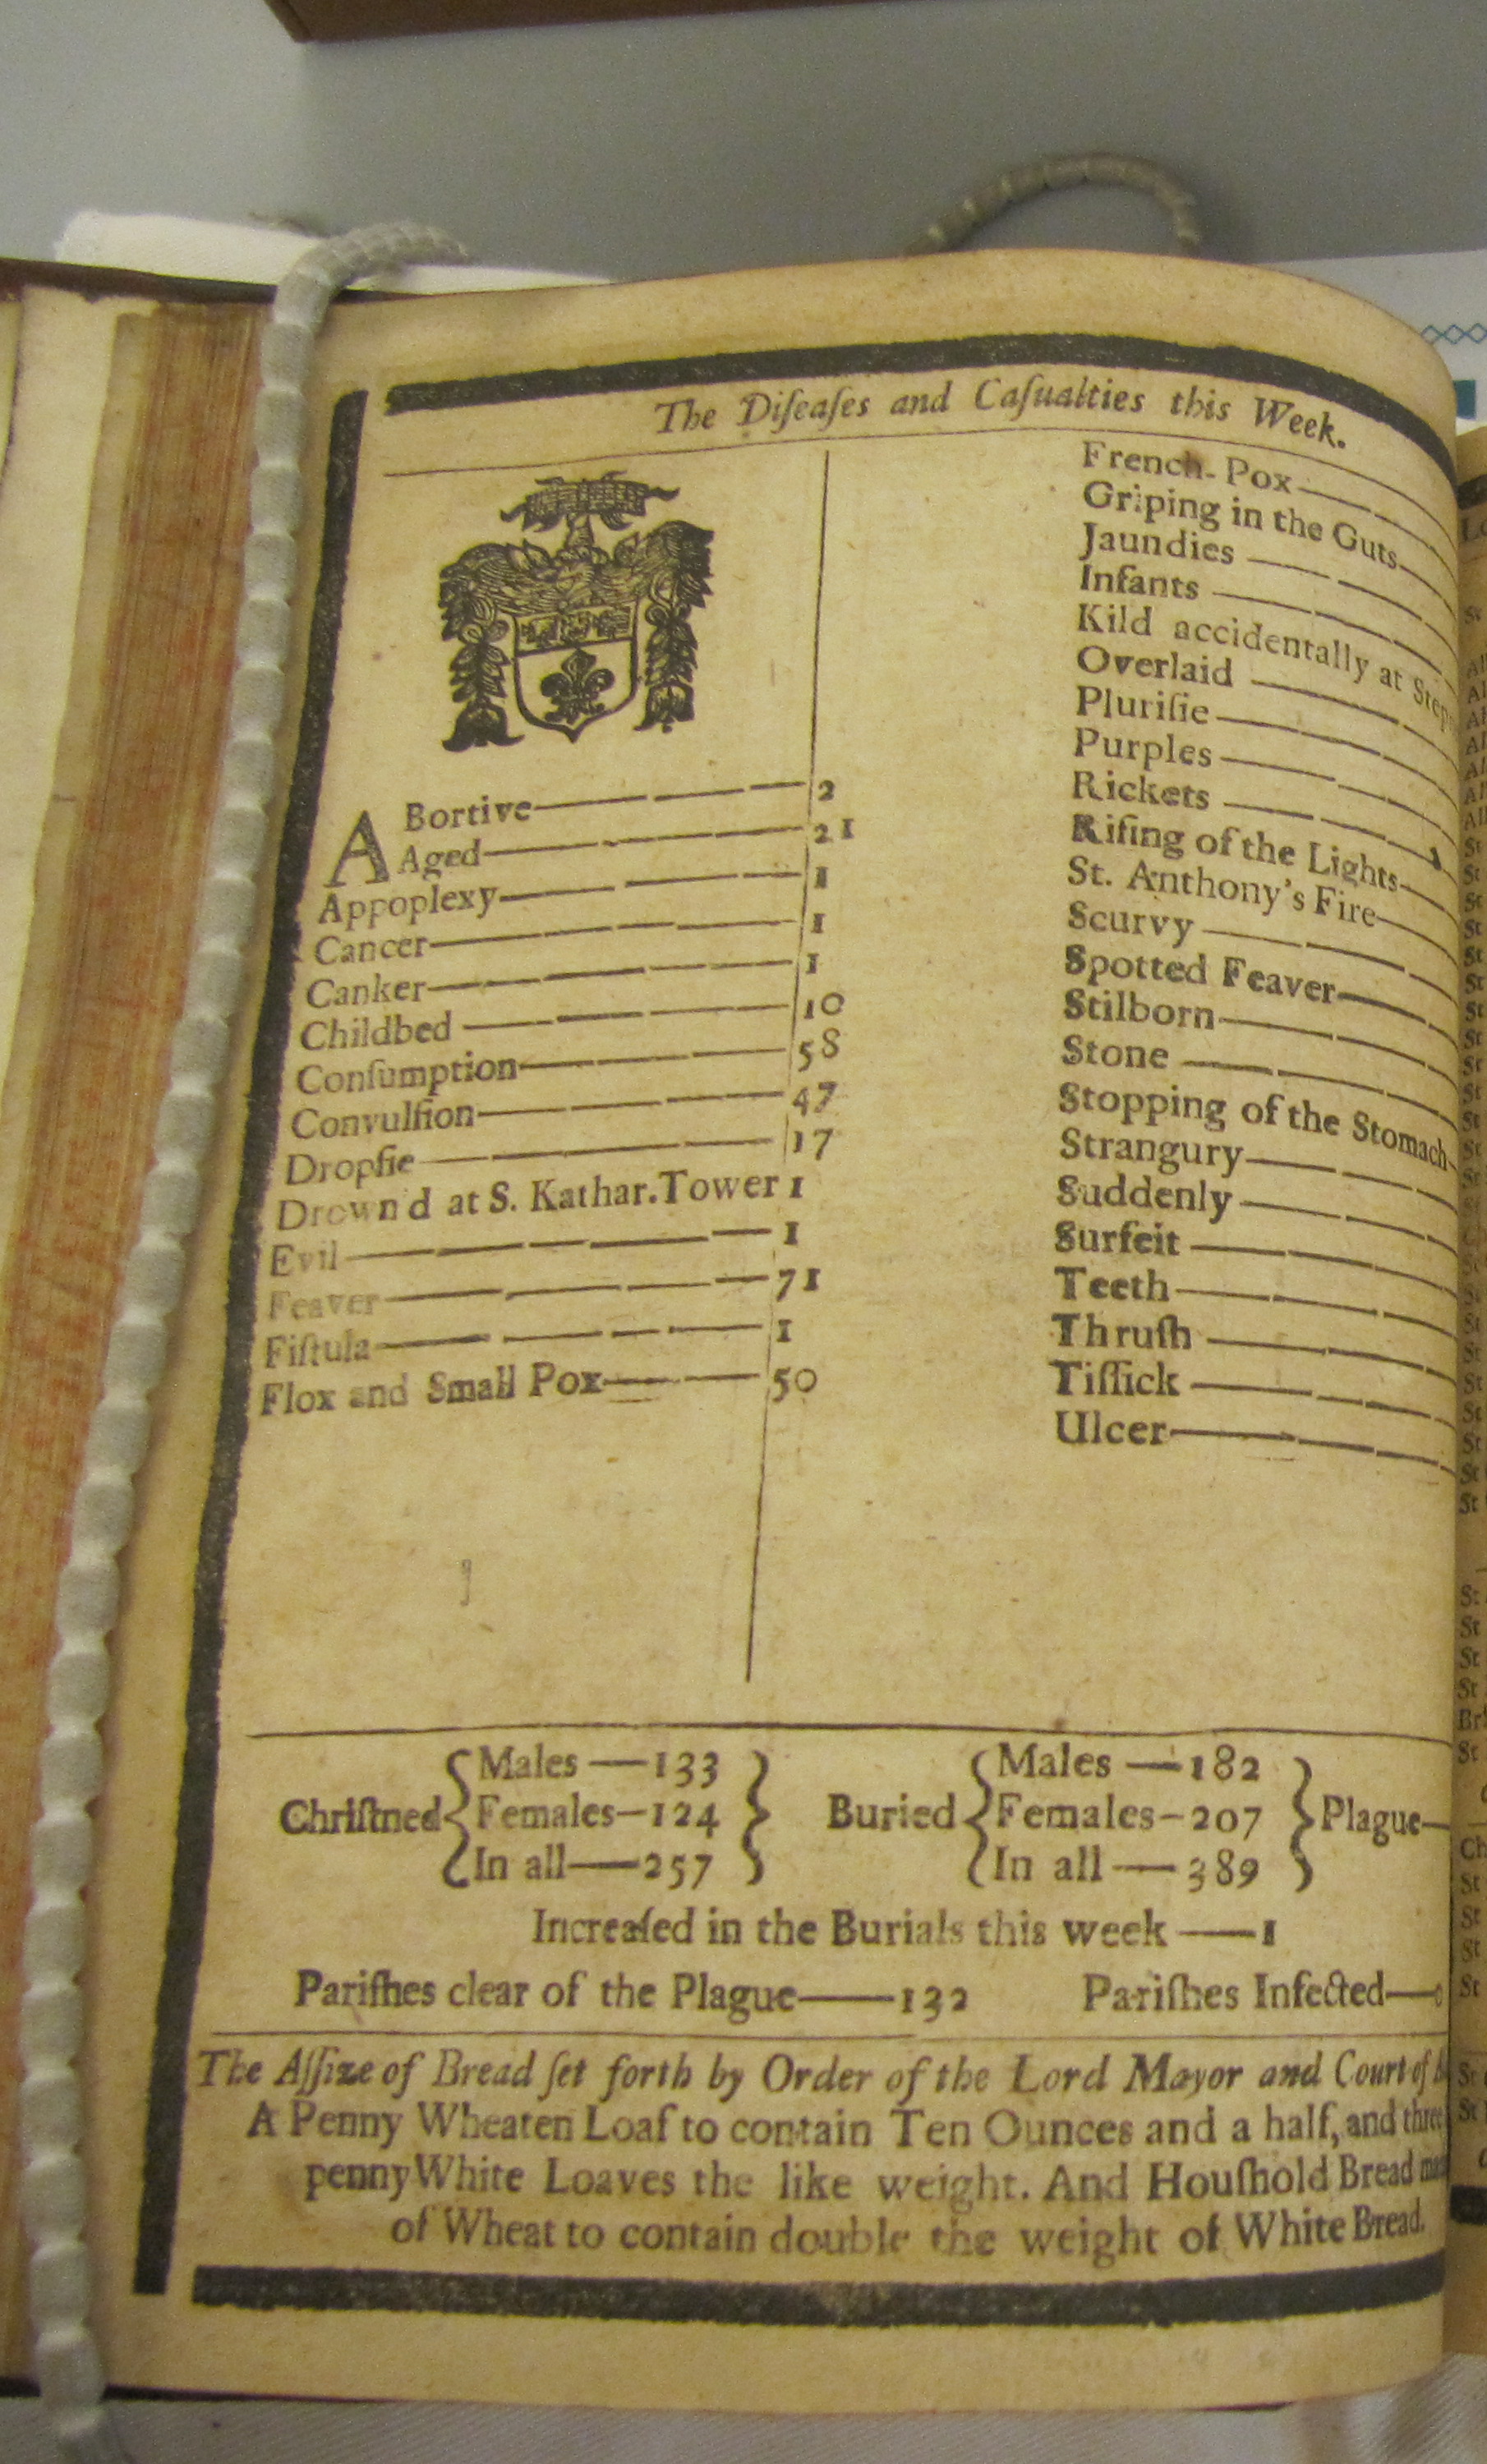 The Diſeaſes and Caſualties this Week.
ABortive 2
Aged 21
Appoplexy 1
Cancer 1
Canker 1
Childbed 10
Conſumption 58
Convulſion 47
Dropſie 17
Drown'd at S. Kathar. Tower 1
Evil 1
Feaver 71
Fiſtula 1
Flox and Small Pox 50
French-Pox
Griping in the Guts
Jaundies
Infants
Kild accidentally at
Overlaid
Pluriſie
Purples
Rickets
Riſing of the Lights
St. Anthony's Fire
Scurvy
Spotted Feaver
Stilborn
Stone
Stopping of the Stomach
Strangury
Suddenly
Surfeit
Teeth
Thruſh
Tiſſick
Ulcer
Chriſtned
Males—133
Females—124
In all—257
Buried
Males—182
Females—207
In all—389
Plague—
Increaſed in the Burials this week—1
Pariſhes clear of the Plague—132 Pariſhes Infected—
The Aſſize of Bread ſet forth by Order of the Lord Mayor and Court of
A Penny Wheaten Loaf to contain Ten Ounces and a half, and three
penny White Loaves the like weight. And Houſhold Bread
of Wheat to contain double the weight of White Bread.